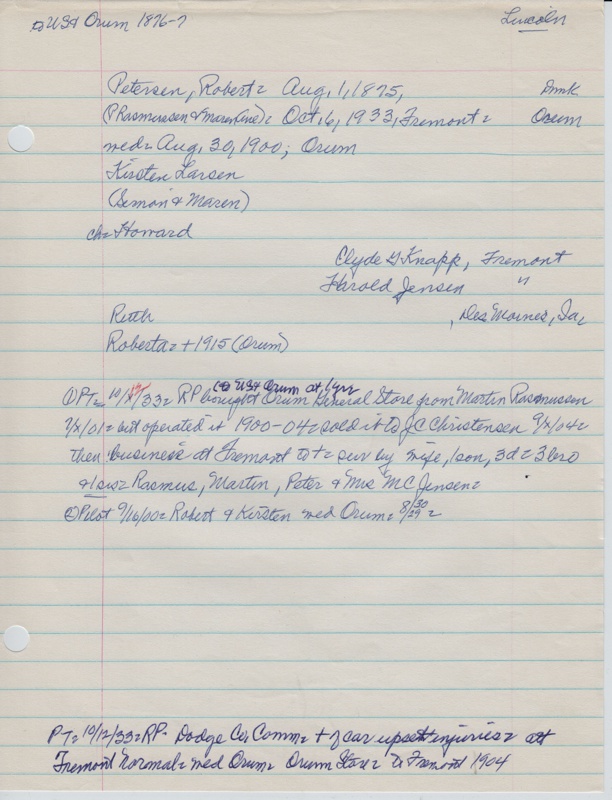 → USA Orum 1876-7
Lincoln
Petersen, Robert = Aug. 1, 1875,
Dmk
(P Rasmussen & Maren Line) = Oct. 6, 1933, Fremont =
Orum
wed = Aug. 30, 1900; Orum
Kirsten Larsen
(Simon & Maren)
ch = Howard
Clyde G Knapp, Fremont
Harold Jensen "
Ruth , Des Moines, Ia,
Roberta = + 1915 (Orum)
(→ USA Orum at 1 yr)
① PT = 10/12/33 = RP bought Orum General Store from Martin Rasmussen
7/x/01 = but operated it 1900-04 = sold it to J C Christensen 9/x/04 =
then business at Fremont to + = surv by wife, 1 son, 3d = 3 bro
& 1 sis = Rasmus, Martin, Peter & Mrs M C Jensen =
② Pilot 9/16/00 = Robert & Kirsten wed Orum = 8/30 29 =
PT = 10/12/33 = RP = Dodge Co, Comm = + of car upset injuries = att
Fremont Normal = wed Orum = Orum Store = to Fremont 1904